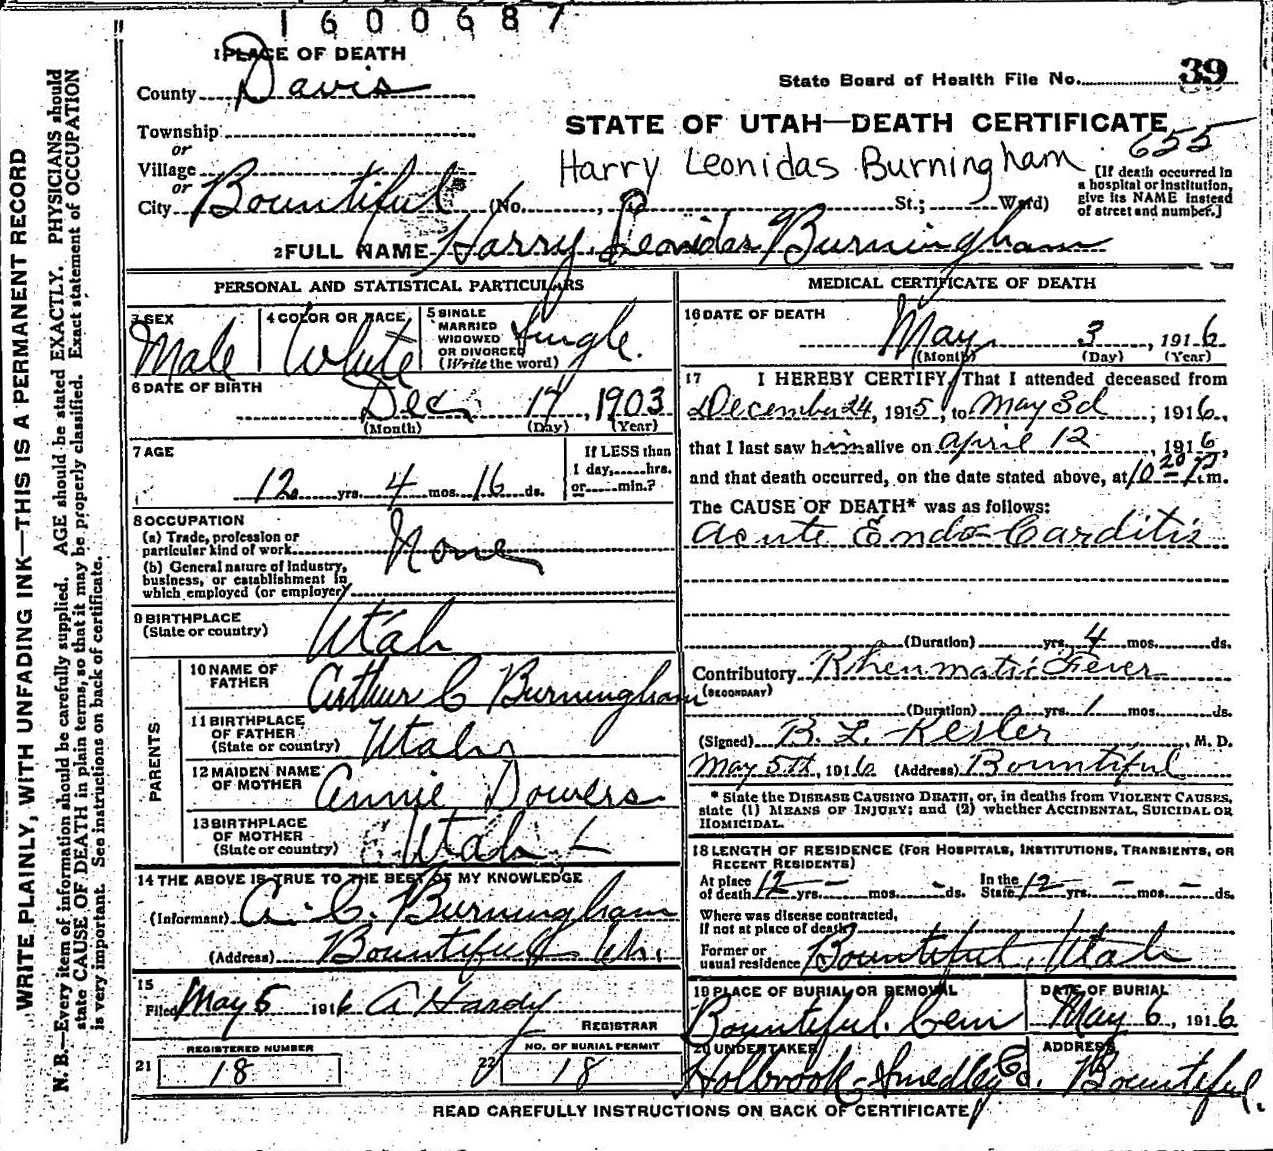 1600687
1 PLACE OF DEATH
County Davis
State Board of Health File No. 39
Township
or
Village
or
City Bountiful (No. , St.; Ward)
STATE OF UTAH—DEATH CERTIFICATE
655
Harry Leonidas Burningham
[If death occurred in
a hospital or institution,
give its NAME instead
of street and number.]
2 FULL NAME Harry Leonidas Burningham
PERSONAL AND STATISTICAL PARTICULARS
3 SEX
Male
4 COLOR OR RACE
White
5 SINGLE
MARRIED
WIDOWED
OR DIVORCED
(Write the word)
Single.
6 DATE OF BIRTH
Dec 17, 1903
(Month) (Day) (Year)
7 AGE
12 yrs. 4 mos. 16 ds.
If LESS than
1 day,......hrs.
or......min.?
8 OCCUPATION
(a) Trade, profession or
particular kind of work
(b) General nature of industry,
business, or establishment in
which employed (or employer)
None
9 BIRTHPLACE
(State or country)
Utah
PARENTS
10 NAME OF
FATHER
Arthur C Burningham
11 BIRTHPLACE
OF FATHER
(State or country)
Utah
12 MAIDEN NAME
OF MOTHER
Annie Dowers
13 BIRTHPLACE
OF MOTHER
(State or country)
Utah
14 THE ABOVE IS TRUE TO THE BEST OF MY KNOWLEDGE
(Informant) A. C. Burningham
(Address) Bountiful Uh.
15
Filed May 5 1916 A Hardy
REGISTRAR
21
REGISTERED NUMBER
18
22
NO. OF BURIAL PERMIT
18
MEDICAL CERTIFICATE OF DEATH
16 DATE OF DEATH
May 3, 1916
(Month) (Day) (Year)
17 I HEREBY CERTIFY, That I attended deceased from
December 24, 1915, to May 3d, 1916,
that I last saw him alive on April 12, 1916,
and that death occurred, on the date stated above, at 10 20 P.m.
The CAUSE OF DEATH* was as follows:
Acute Endo-Carditis
(Duration) yrs. 4 mos. ds.
Contributory Rheumatic Fever
(SECONDARY)
(Duration) yrs. 1 mos. ds.
(Signed) B. L. Kesler, M. D.
May 5th, 1916 (Address) Bountiful
* State the DISEASE CAUSING DEATH, or, in deaths from VIOLENT CAUSES,
state (1) MEANS OF INJURY; and (2) whether ACCIDENTAL, SUICIDAL OR
HOMICIDAL.
18 LENGTH OF RESIDENCE (FOR HOSPITALS, INSTITUTIONS, TRANSIENTS, OR
RECENT RESIDENTS)
At place
of death 12 yrs. – mos. – ds.
In the
State 12 yrs. – mos. – ds.
Where was disease contracted,
if not at place of death?
Former or
usual residence Bountiful, Utah
19 PLACE OF BURIAL OR REMOVAL
Bountiful. Cem
DATE OF BURIAL
May 6, 1916
20 UNDERTAKER
Holbrook-Smedley Co.
ADDRESS
Bountiful.
READ CAREFULLY INSTRUCTIONS ON BACK OF CERTIFICATE
WRITE PLAINLY, WITH UNFADING INK—THIS IS A PERMANENT RECORD
N. B.—Every item of information should be carefully supplied. AGE should be stated EXACTLY. PHYSICIANS should
state CAUSE OF DEATH in plain terms, so that it may be properly classified. Exact statement of OCCUPATION
is very important. See instructions on back of certificate.